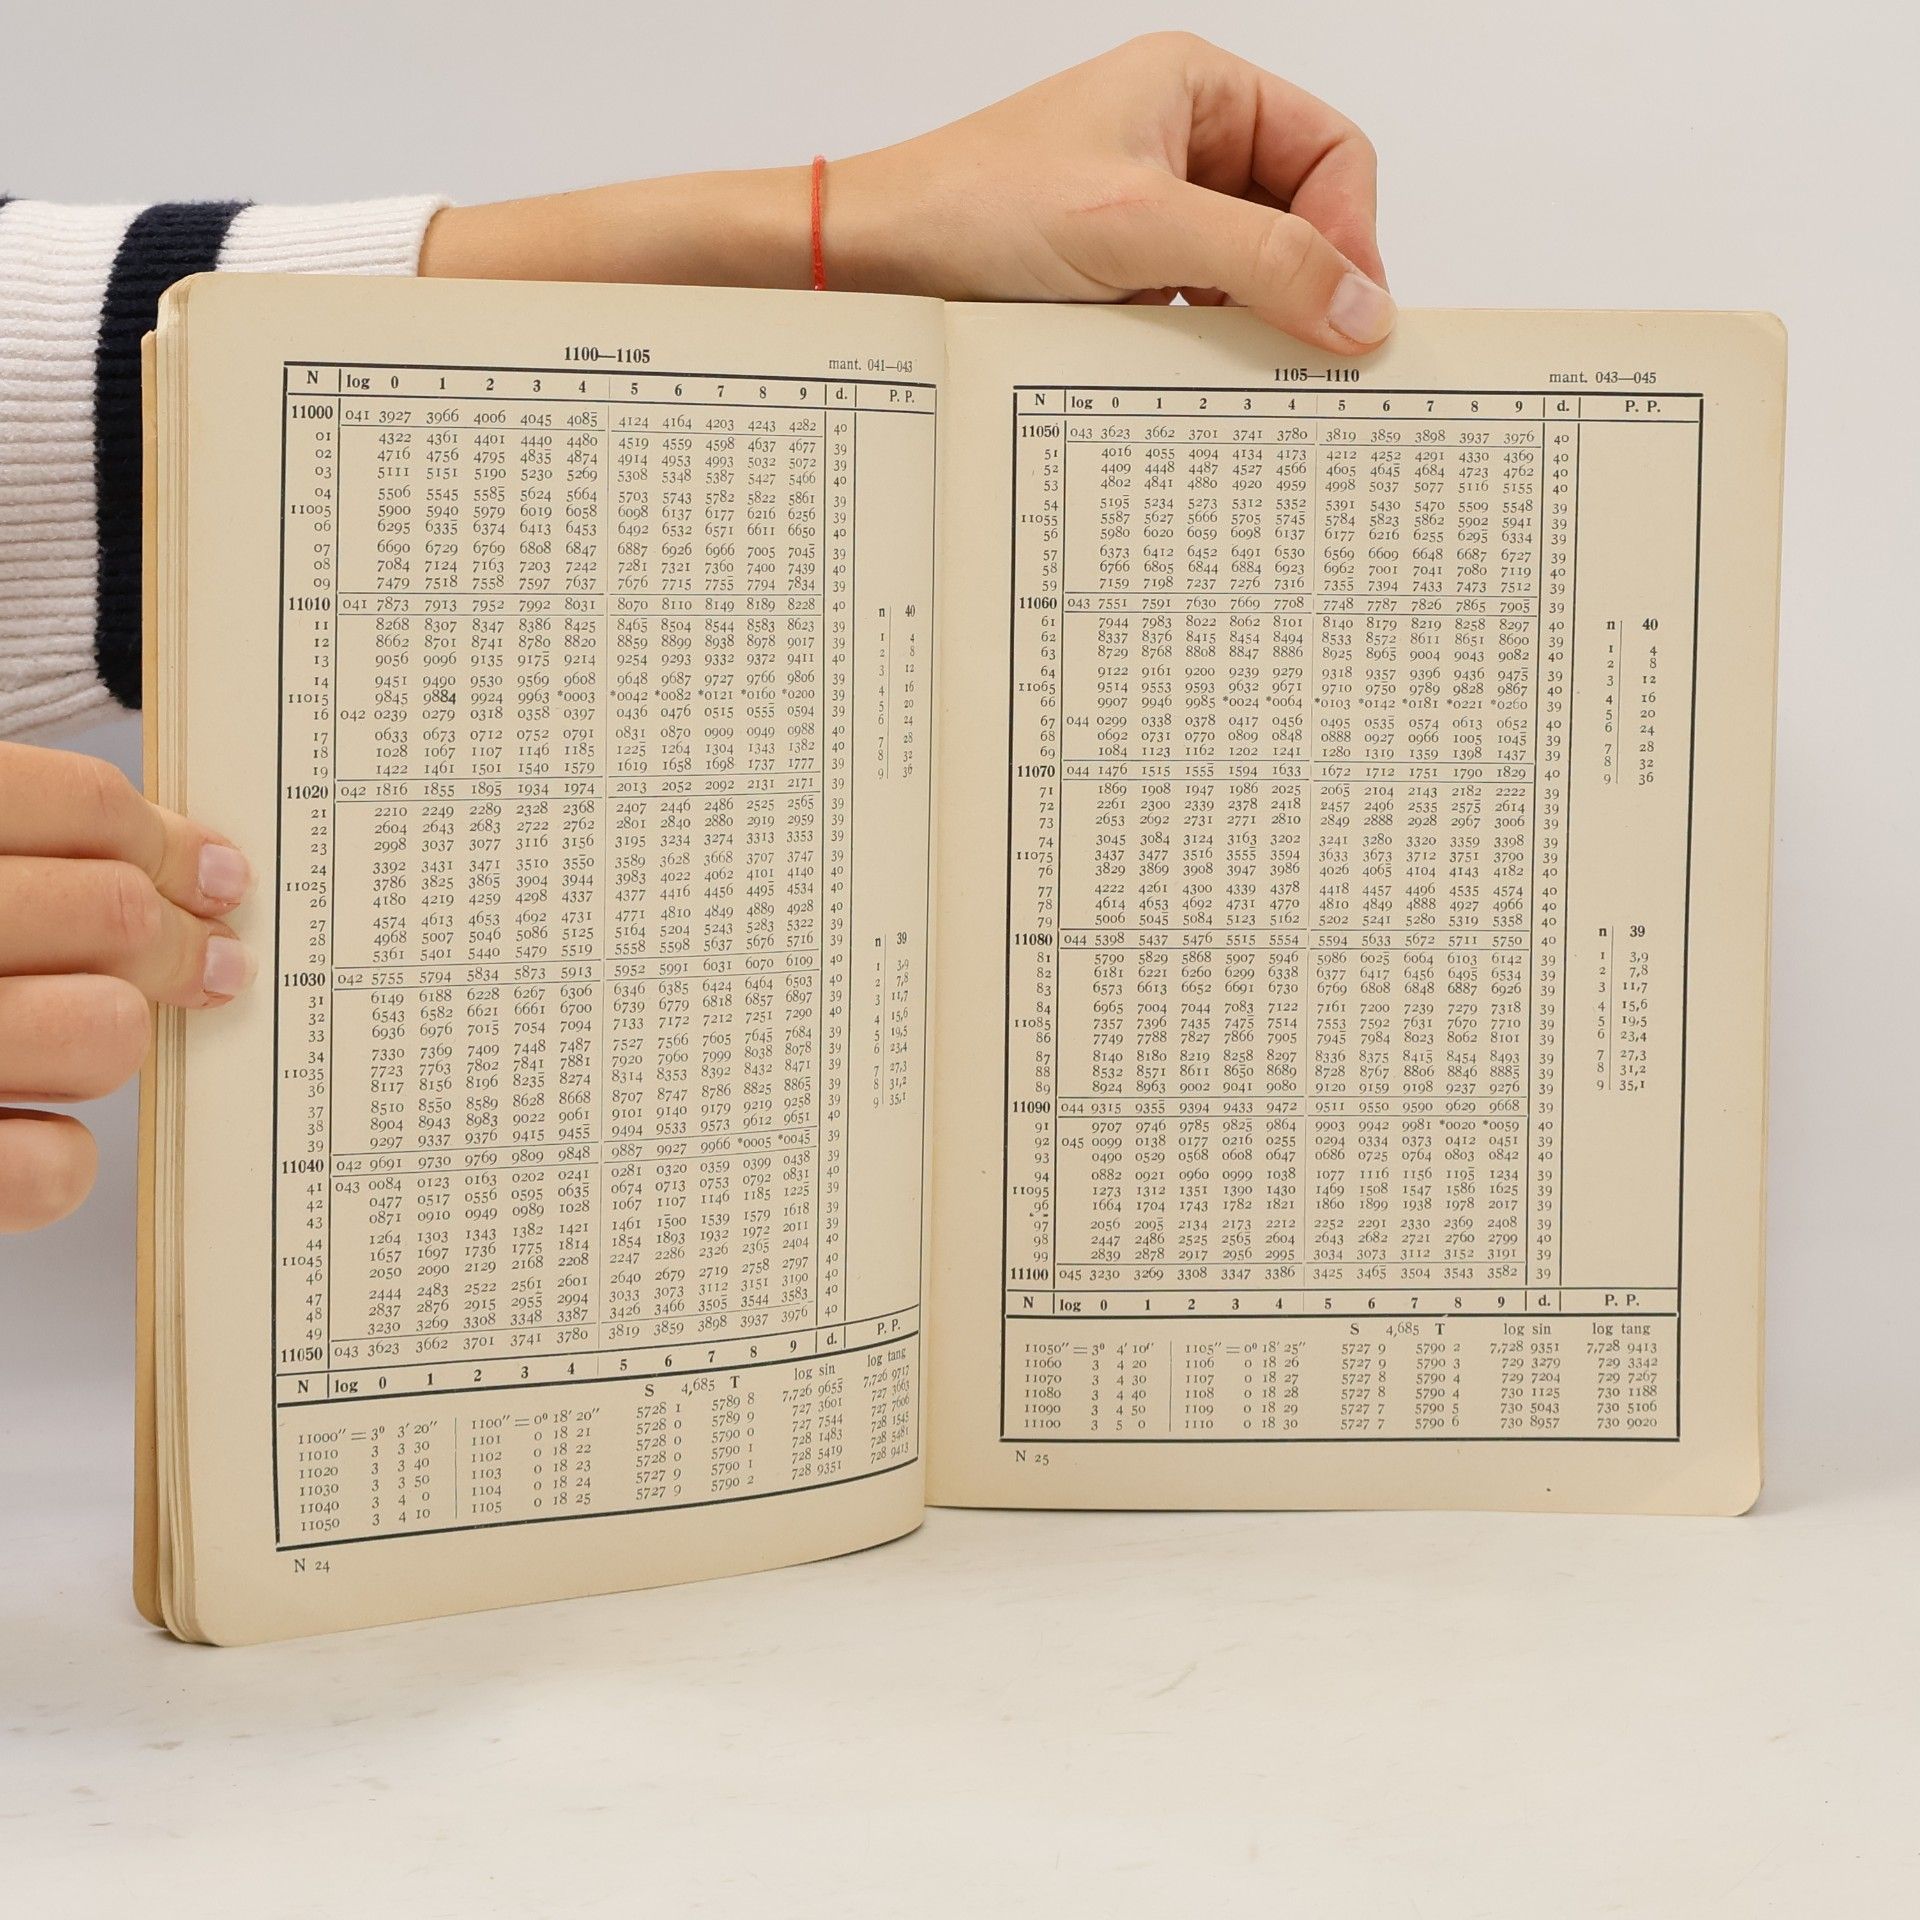 1100—1105 mant. 041—043
N log 0 1 2 3 4 5 6 7 8 9 d. P. P.
11000 041 3927 3966 4006 4045 4085 4124 4164 4203 4243 4282 40
01 4322 4361 4401 4440 4480 4519 4559 4598 4637 4677 39
02 4716 4756 4795 4835 4874 4914 4953 4993 5032 5072 39
03 5111 5151 5190 5230 5269 5308 5348 5387 5427 5466 40
04 5506 5545 5585 5624 5664 5703 5743 5782 5822 5861 39
11005 5900 5940 5979 6019 6058 6098 6137 6177 6216 6256 39
06 6295 6335 6374 6413 6453 6492 6532 6571 6611 6650 40
07 6690 6729 6769 6808 6847 6887 6926 6966 7005 7045 39
08 7084 7124 7163 7203 7242 7281 7321 7360 7400 7439 40
09 7479 7518 7558 7597 7637 7676 7715 7755 7794 7834 39
11010 041 7873 7913 7952 7992 8031 8070 8110 8149 8189 8228 40 n 40
11 8268 8307 8347 8386 8425 8465 8504 8544 8583 8623 39 1 4
12 8662 8701 8741 8780 8820 8859 8899 8938 8978 9017 39 2 8
13 9056 9096 9135 9175 9214 9254 9293 9332 9372 9411 40 3 12
14 9451 9490 9530 9569 9608 9648 9687 9727 9766 9806 39 4 16
11015 9845 9884 9924 9963 *0003 *0042 *0082 *0121 *0160 *0200 39 5 20
16 042 0239 0279 0318 0358 0397 0436 0476 0515 0555 0594 39 6 24
17 0633 0673 0712 0752 0791 0831 0870 0909 0949 0988 40 7 28
18 1028 1067 1107 1146 1185 1225 1264 1304 1343 1382 40 8 32
19 1422 1461 1501 1540 1579 1619 1658 1698 1737 1777 39 9 36
11020 042 1816 1855 1895 1934 1974 2013 2052 2092 2131 2171 39
21 2210 2249 2289 2328 2368 2407 2446 2486 2525 2565 39
22 2604 2643 2683 2722 2762 2801 2840 2880 2919 2959 39
23 2998 3037 3077 3116 3156 3195 3234 3274 3313 3353 39
24 3392 3431 3471 3510 3550 3589 3628 3668 3707 3747 39
11025 3786 3825 3865 3904 3944 3983 4022 4062 4101 4140 40
26 4180 4219 4259 4298 4337 4377 4416 4456 4495 4534 40
27 4574 4613 4653 4692 4731 4771 4810 4849 4889 4928 40
28 4968 5007 5046 5086 5125 5164 5204 5243 5283 5322 39
29 5361 5401 5440 5479 5519 5558 5598 5637 5676 5716 39 n 39
11030 042 5755 5794 5834 5873 5913 5952 5991 6031 6070 6109 40 1 3,9
31 6149 6188 6228 6267 6306 6346 6385 6424 6464 6503 40 2 7,8
32 6543 6582 6621 6661 6700 6739 6779 6818 6857 6897 39 3 11,7
33 6936 6976 7015 7054 7094 7133 7172 7212 7251 7290 40 4 15,6
34 7330 7369 7409 7448 7487 7527 7566 7605 7645 7684 39 5 19,5
11035 7723 7763 7802 7841 7881 7920 7960 7999 8038 8078 39 6 23,4
36 8117 8156 8196 8235 8274 8314 8353 8392 8432 8471 39 7 27,3
37 8510 8550 8589 8628 8668 8707 8747 8786 8825 8865 39 8 31,2
38 8904 8943 8983 9022 9061 9101 9140 9179 9219 9258 39 9 35,1
39 9297 9337 9376 9415 9455 9494 9533 9573 9612 9651 40
11040 042 9691 9730 9769 9809 9848 9887 9927 9966 *0005 *0045 39
41 043 0084 0123 0163 0202 0241 0281 0320 0359 0399 0438 39
42 0477 0517 0556 0595 0635 0674 0713 0753 0792 0831 40
43 0871 0910 0949 0989 1028 1067 1107 1146 1185 1225 39
44 1264 1303 1343 1382 1421 1461 1500 1539 1579 1618 39
11045 1657 1697 1736 1775 1814 1854 1893 1932 1972 2011 39
46 2050 2090 2129 2168 2208 2247 2286 2326 2365 2404 40
47 2444 2483 2522 2561 2601 2640 2679 2719 2758 2797 40
48 2837 2876 2915 2955 2994 3033 3073 3112 3151 3190 40
49 3230 3269 3308 3348 3387 3426 3466 3505 3544 3583 40
11050 043 3623 3662 3701 3741 3780 3819 3859 3898 3937 3976 40
N log 0 1 2 3 4 5 6 7 8 9 d. P. P.
S 4,685 T log sin log tang
11000″ = 3° 3′ 20″ 1100″ = 0° 18′ 20″ 5728 1 5789 8 7,726 9655 7,726 9717
11010 3 3 30 1101 0 18 21 5728 0 5789 9 727 3601 727 3663
11020 3 3 40 1102 0 18 22 5728 0 5790 0 727 7544 727 7606
11030 3 3 50 1103 0 18 23 5728 0 5790 1 728 1483 728 1545
11040 3 4 0 1104 0 18 24 5727 9 5790 1 728 5419 728 5481
11050 3 4 10 1105 0 18 25 5727 9 5790 2 728 9351 728 9413
N 24
1105—1110 mant. 043—045
N log 0 1 2 3 4 5 6 7 8 9 d. P. P.
11050 043 3623 3662 3701 3741 3780 3819 3859 3898 3937 3976 40
51 4016 4055 4094 4134 4173 4212 4252 4291 4330 4369 40
52 4409 4448 4487 4527 4566 4605 4645 4684 4723 4762 40
53 4802 4841 4880 4920 4959 4998 5037 5077 5116 5155 40
54 5195 5234 5273 5312 5352 5391 5430 5470 5509 5548 39
11055 5587 5627 5666 5705 5745 5784 5823 5862 5902 5941 39
56 5980 6020 6059 6098 6137 6177 6216 6255 6295 6334 39
57 6373 6412 6452 6491 6530 6569 6609 6648 6687 6727 39
58 6766 6805 6844 6884 6923 6962 7001 7041 7080 7119 40
59 7159 7198 7237 7276 7316 7355 7394 7433 7473 7512 39
11060 043 7551 7591 7630 7669 7708 7748 7787 7826 7865 7905 39
61 7944 7983 8022 8062 8101 8140 8179 8219 8258 8297 40 n 40
62 8337 8376 8415 8454 8494 8533 8572 8611 8651 8690 39 1 4
63 8729 8768 8808 8847 8886 8925 8965 9004 9043 9082 40 2 8
64 9122 9161 9200 9239 9279 9318 9357 9396 9436 9475 39 3 12
11065 9514 9553 9593 9632 9671 9710 9750 9789 9828 9867 40 4 16
66 9907 9946 9985 *0024 *0064 *0103 *0142 *0181 *0221 *0260 39 5 20
67 044 0299 0338 0378 0417 0456 0495 0535 0574 0613 0652 40 6 24
68 0692 0731 0770 0809 0848 0888 0927 0966 1005 1045 39 7 28
69 1084 1123 1162 1202 1241 1280 1319 1359 1398 1437 39 8 32
11070 044 1476 1515 1555 1594 1633 1672 1712 1751 1790 1829 40 9 36
71 1869 1908 1947 1986 2025 2065 2104 2143 2182 2222 39
72 2261 2300 2339 2378 2418 2457 2496 2535 2575 2614 39
73 2653 2692 2731 2771 2810 2849 2888 2928 2967 3006 39
74 3045 3084 3124 3163 3202 3241 3280 3320 3359 3398 39
11075 3437 3477 3516 3555 3594 3633 3673 3712 3751 3790 39
76 3829 3869 3908 3947 3986 4026 4065 4104 4143 4182 40
77 4222 4261 4300 4339 4378 4418 4457 4496 4535 4574 40
78 4614 4653 4692 4731 4770 4810 4849 4888 4927 4966 40
79 5006 5045 5084 5123 5162 5202 5241 5280 5319 5358 40
11080 044 5398 5437 5476 5515 5554 5594 5633 5672 5711 5750 40 n 39
81 5790 5829 5868 5907 5946 5986 6025 6064 6103 6142 39 1 3,9
82 6181 6221 6260 6299 6338 6377 6417 6456 6495 6534 39 2 7,8
83 6573 6613 6652 6691 6730 6769 6808 6848 6887 6926 39 3 11,7
84 6965 7004 7044 7083 7122 7161 7200 7239 7279 7318 39 4 15,6
11085 7357 7396 7435 7475 7514 7553 7592 7631 7670 7710 39 5 19,5
86 7749 7788 7827 7866 7905 7945 7984 8023 8062 8101 39 6 23,4
87 8140 8180 8219 8258 8297 8336 8375 8415 8454 8493 39 7 27,3
88 8532 8571 8611 8650 8689 8728 8767 8806 8846 8885 39 8 31,2
89 8924 8963 9002 9041 9080 9120 9159 9198 9237 9276 39 9 35,1
11090 044 9315 9355 9394 9433 9472 9511 9550 9590 9629 9668 39
91 9707 9746 9785 9825 9864 9903 9942 9981 *0020 *0059 40
92 045 0099 0138 0177 0216 0255 0294 0334 0373 0412 0451 39
93 0490 0529 0568 0608 0647 0686 0725 0764 0803 0842 40
94 0882 0921 0960 0999 1038 1077 1116 1156 1195 1234 39
11095 1273 1312 1351 1390 1430 1469 1508 1547 1586 1625 39
96 1664 1704 1743 1782 1821 1860 1899 1938 1978 2017 39
97 2056 2095 2134 2173 2212 2252 2291 2330 2369 2408 39
98 2447 2486 2525 2565 2604 2643 2682 2721 2760 2799 40
99 2839 2878 2917 2956 2995 3034 3073 3112 3152 3191 39
11100 045 3230 3269 3308 3347 3386 3425 3465 3504 3543 3582 39
N log 0 1 2 3 4 5 6 7 8 9 d. P. P.
S 4,685 T log sin log tang
11050″ = 3° 4′ 10″ 1105″ = 0° 18′ 25″ 5727 9 5790 2 7,728 9351 7,728 9413
11060 3 4 20 1106 0 18 26 5727 9 5790 3 729 3279 729 3342
11070 3 4 30 1107 0 18 27 5727 8 5790 4 729 7204 729 7267
11080 3 4 40 1108 0 18 28 5727 8 5790 4 730 1125 730 1188
11090 3 4 50 1109 0 18 29 5727 7 5790 5 730 5043 730 5106
11100 3 5 0 1110 0 18 30 5727 7 5790 6 730 8957 730 9020
N 25